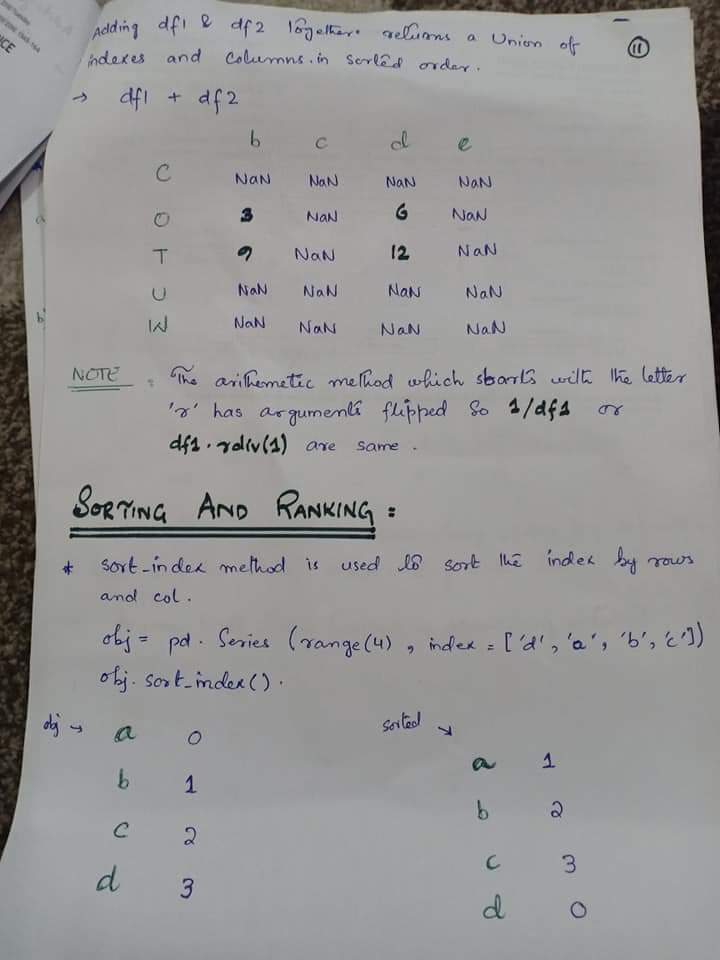 Adding df1 & df2 together returns a Union of
indexes and columns. in sorted order.
11
→ df1 + df2
b c d e
C NaN NaN NaN NaN
O 3 NaN 6 NaN
T 9 NaN 12 NaN
U NaN NaN NaN NaN
W NaN NaN NaN NaN
NOTE : The arithemetic method which starts with the letter
'r' has arguments flipped so 1/df1 or
df1.rdiv(1) are same.
SORTING AND RANKING :
* sort_index method is used to sort the index by rows
and col.
obj = pd. Series (range(4), index = ['d', 'a', 'b', 'c'])
obj. sort_index().
obj → sorted ↘
a 0 a 1
b 1 b 2
c 2 c 3
d 3 d 0